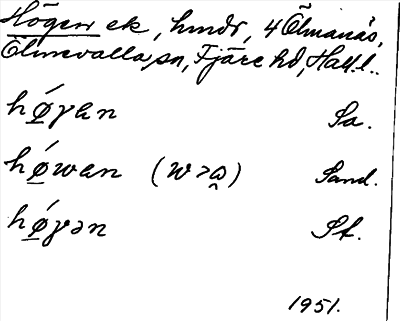 Högen ek, hmdr, 4 Ölmanäs,
Ölmevalla sn, Fjäre hd, Hall.l.
hǿ̱γen Sa.
hǿ̱wen (w>ω̯) Sand.
hǿ̱γən St.
1951.